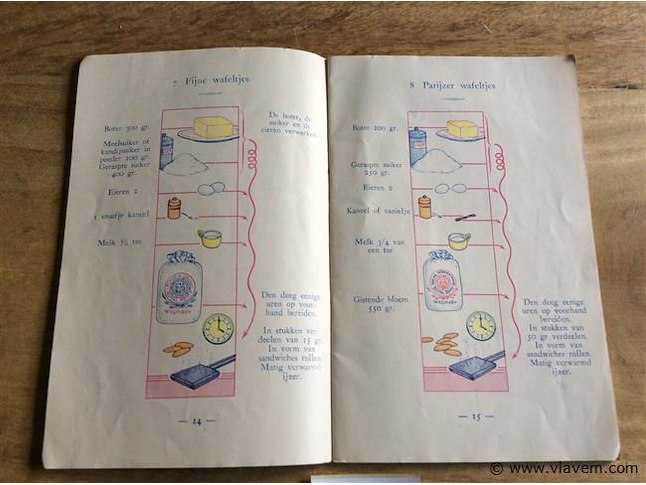 7 Fijne wafeltjes
Boter 300 gr.
De boter, de
suiker en de
eieren verwerken.
Meelsuiker of
kandijsuiker in
poeder 200 gr.
Geraspte suiker
400 gr.
Eieren 2
1 snuifje kaneel
Melk ½ tas
Den deeg eenige
uren op voor-
hand bereiden.
In stukken ver-
deelen van 15 gr.
In vorm van
sandwiches rollen.
Matig verwarmd
ijzer.
— 14 —
8 Parijzer wafeltjes
Boter 200 gr.
Geraspte suiker
250 gr.
Eieren 2
Kaneel of vanielje
Melk 3/4 van
een tas
Gistende bloem
550 gr.
Den deeg eenige
uren op voorhand
bereiden.
In stukken van
50 gr verdeelen.
In vorm van
sandwiches rollen.
Matig verwarmd
ijzer.
— 15 —
© www.vlavem.com